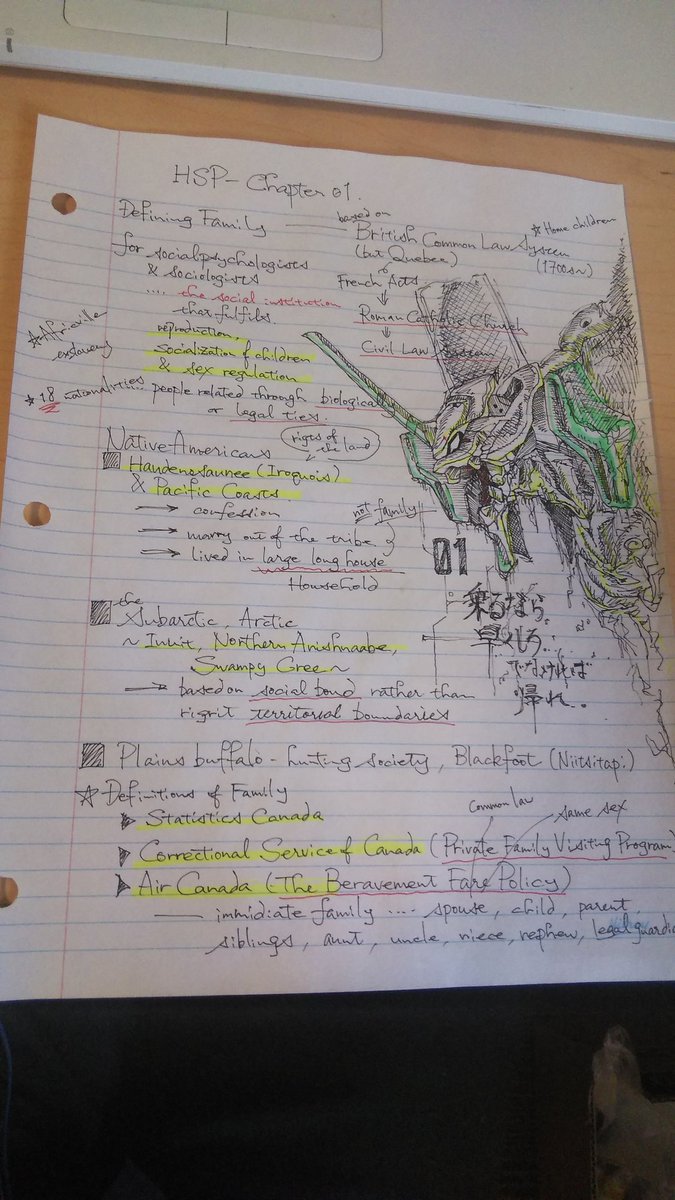 HSP - Chapter 01.
Defining Family
based on
British Common Law System
(but Quebec)
(1700s~)
☆ Home children
for socialpsychologists
& sociologists
.... the social institution
that fulfils.
reproduction,
Socialization of children
& sex regulation
French Acts
Roman Catholic Church
Civil Law System
☆ Africville
☆ 18 nationalities
people related through biologically
or legal ties.
Native-Americans
rights of the land
Haudenosaunee (Iroquois)
& Pacific Coasts
→ confession
→ marry out of the tribe
→ lived in large long house
Household
not family
01
乗るなら
早くしろ..
でなければ
帰れ.
the
Subarctic, Arctic
~ Inuit, Northern Anishnaabe,
Swampy Cree ~
→ based on social bond rather than
rigrit territorial boundaries
Plains buffalo - hunting society, Blackfoot (Niitsitapi)
☆ Definitions of Family
▶ Statistics Canada
Common law
same sex
▶ Correctional Service of Canada (Private Family Visiting Program)
▶ Air Canada (The Beravement Fare Policy)
— immidiate family .... spouse, child, parent,
siblings, aunt, uncle, niece, nephew, legal guardia